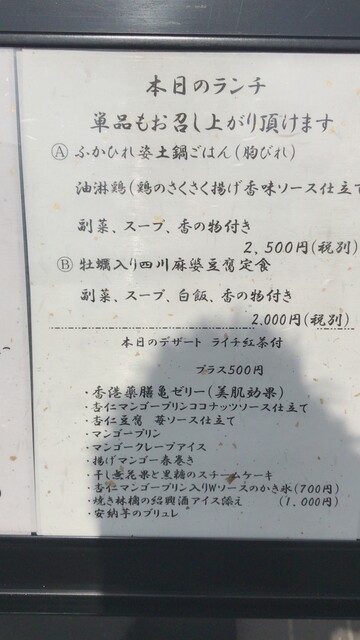 本日のランチ
単品もお召し上がり頂けます
Ⓐ ふかひれ姿土鍋ごはん(胸びれ)
油淋鶏(鶏のさくさく揚げ香味ソース仕立て
副菜、スープ、香の物付き
2,500円(税別)
Ⓑ 牡蠣入り四川麻婆豆腐定食
副菜、スープ、白飯、香の物付き
2,000円(税別)
本日のデザート ライチ紅茶付
プラス500円
・香港薬膳亀ゼリー(美肌効果)
・杏仁マンゴープリンココナッツソース仕立て
・杏仁豆腐 苺ソース仕立て
・マンゴープリン
・マンゴークレープアイス
・揚げマンゴー春巻き
・干し無花果と黒糖のスチームケーキ
・杏仁マンゴープリン入りWソースのかき氷(700円)
・焼き林檎の紹興酒アイス添え (1,000円)
・安納芋のブリュレ